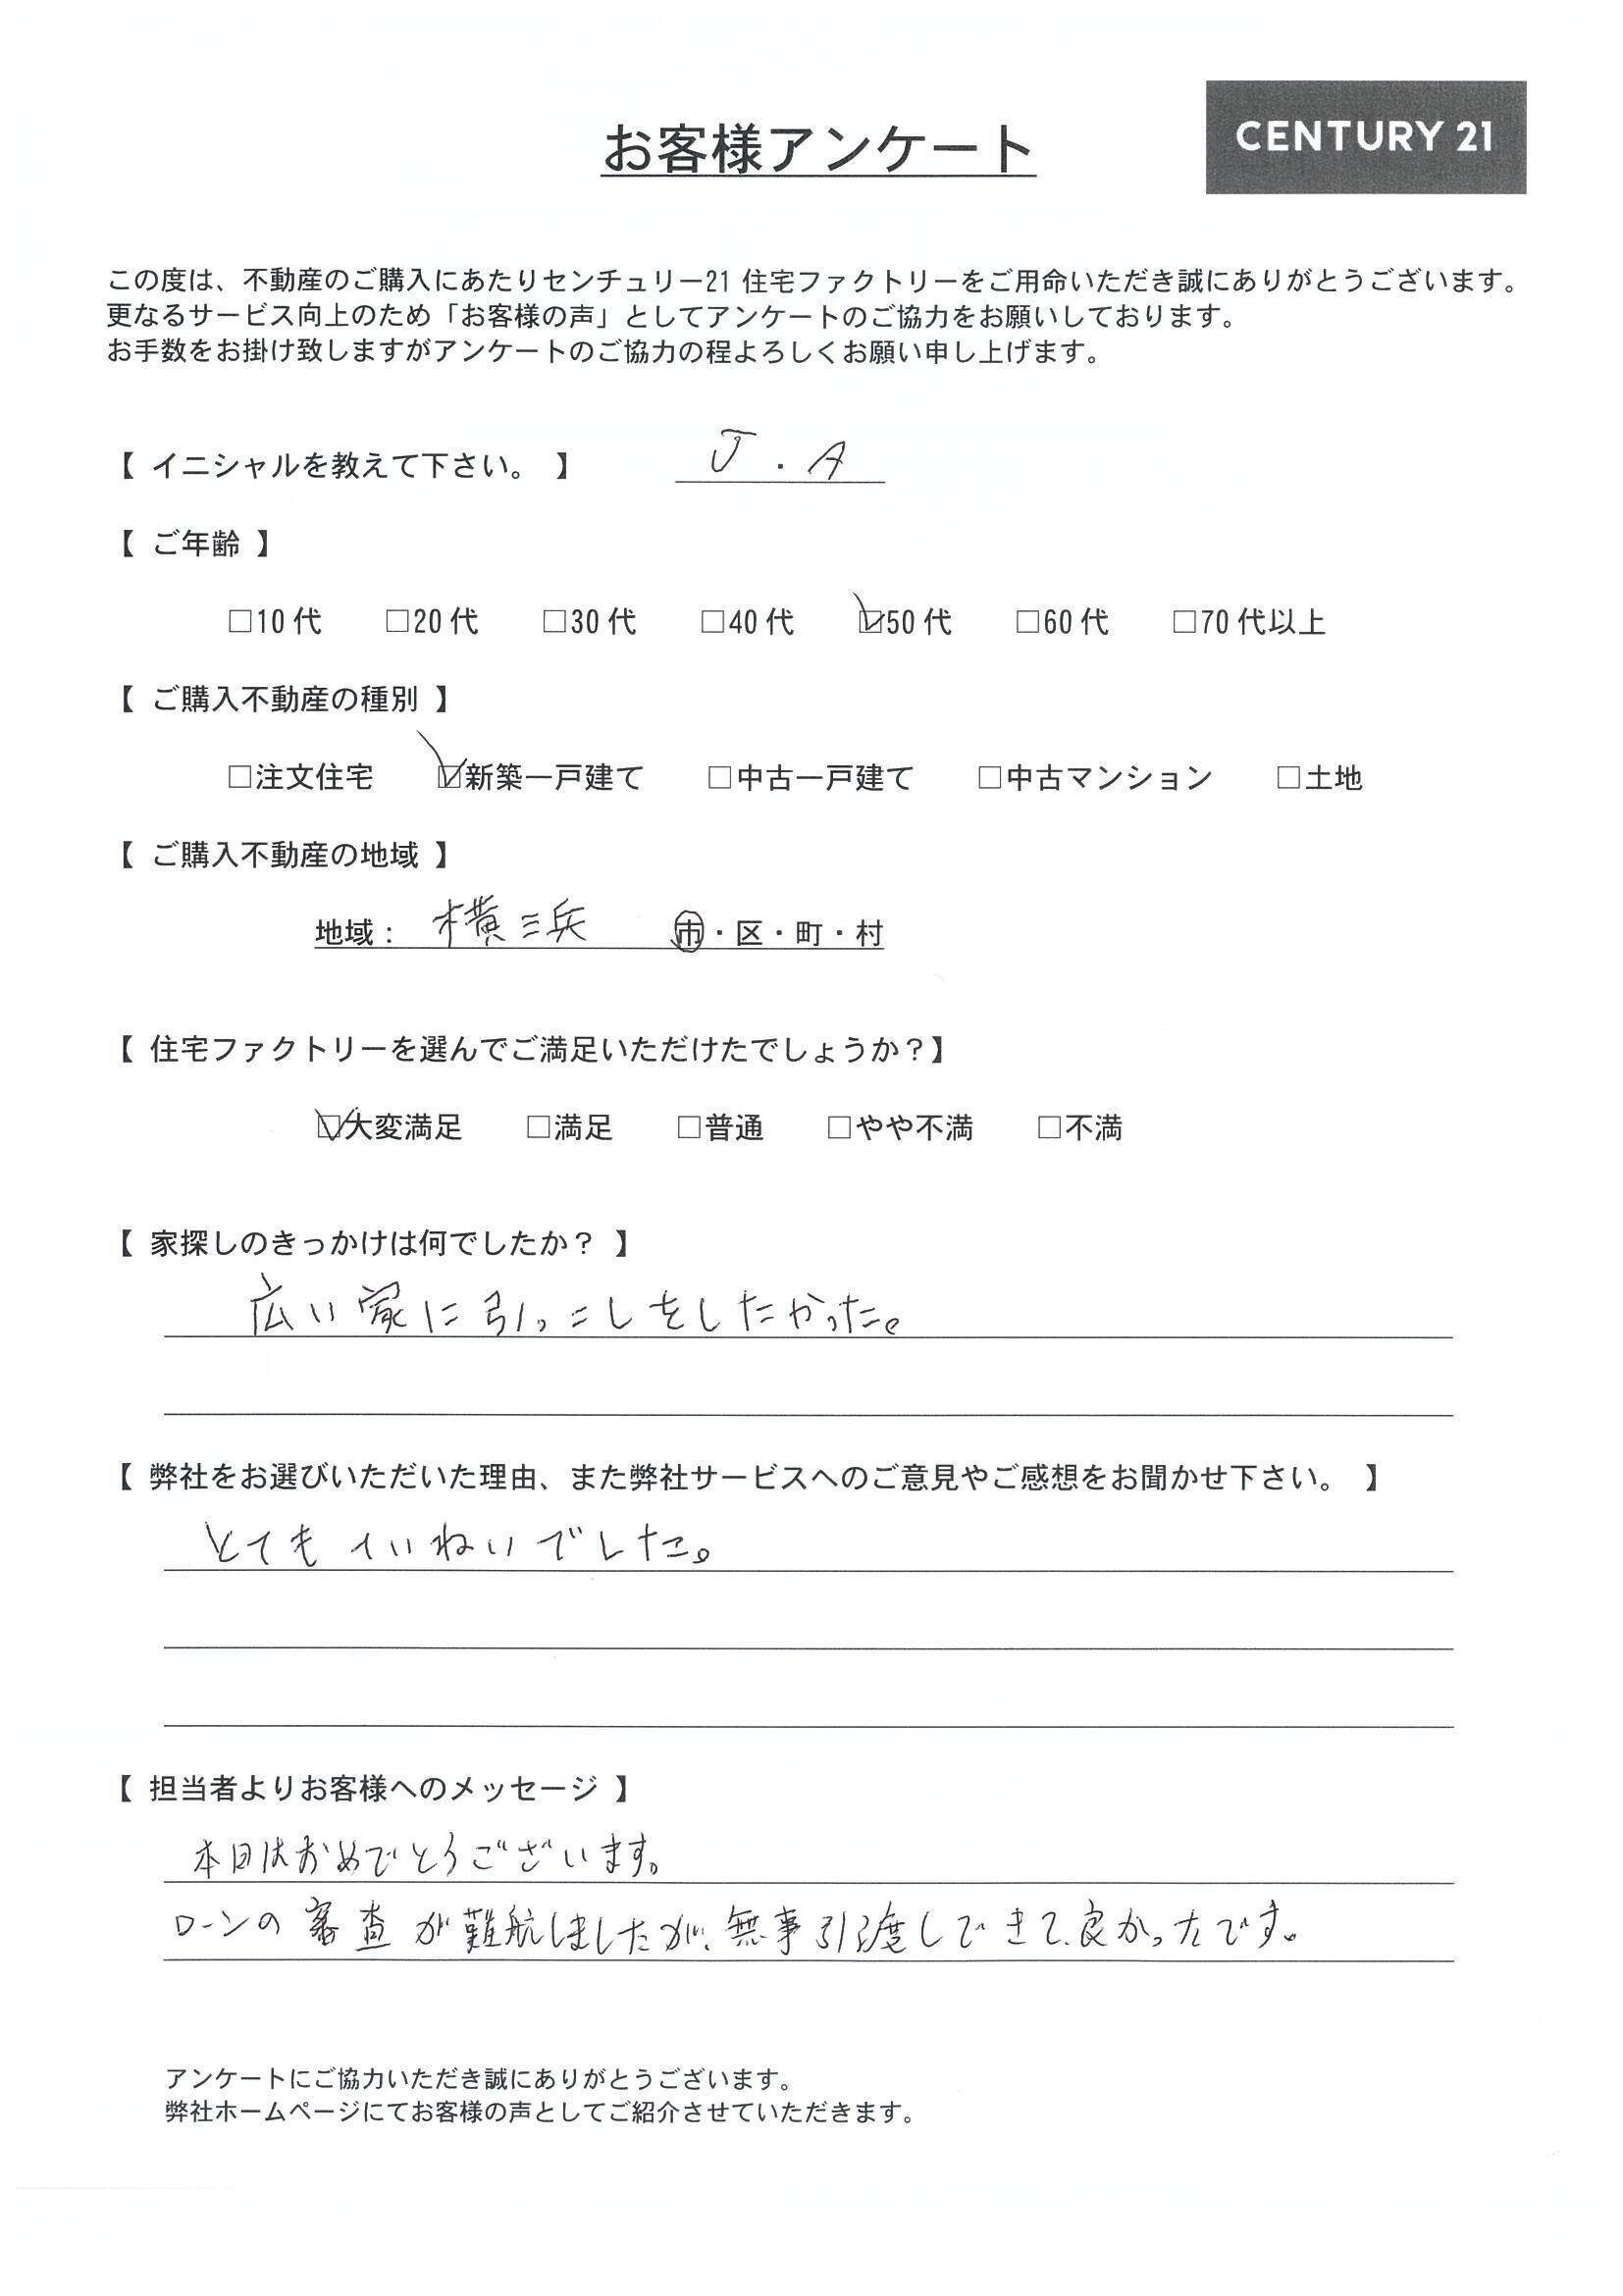 お客様アンケート
CENTURY 21
この度は、不動産のご購入にあたりセンチュリー21 住宅ファクトリーをご用命いただき誠にありがとうございます。
更なるサービス向上のため「お客様の声」としてアンケートのご協力をお願いしております。
お手数をお掛け致しますがアンケートのご協力の程よろしくお願い申し上げます。
【 イニシャルを教えて下さい。 】 J・A
【 ご年齢 】
□10代 □20代 □30代 □40代 ☑50代 □60代 □70代以上
【 ご購入不動産の種別 】
□注文住宅 ☑新築一戸建て □中古一戸建て □中古マンション □土地
【 ご購入不動産の地域 】
地域： 横浜 市・区・町・村
【 住宅ファクトリーを選んでご満足いただけたでしょうか？】
☑大変満足 □満足 □普通 □やや不満 □不満
【 家探しのきっかけは何でしたか？ 】
広い家に引っこしをしたかった。
【 弊社をお選びいただいた理由、また弊社サービスへのご意見やご感想をお聞かせ下さい。 】
とてもていねいでした。
【 担当者よりお客様へのメッセージ 】
本日はおめでとうございます。
ローンの審査が難航しましたが、無事引渡しできて、良かったです。
アンケートにご協力いただき誠にありがとうございます。
弊社ホームページにてお客様の声としてご紹介させていただきます。